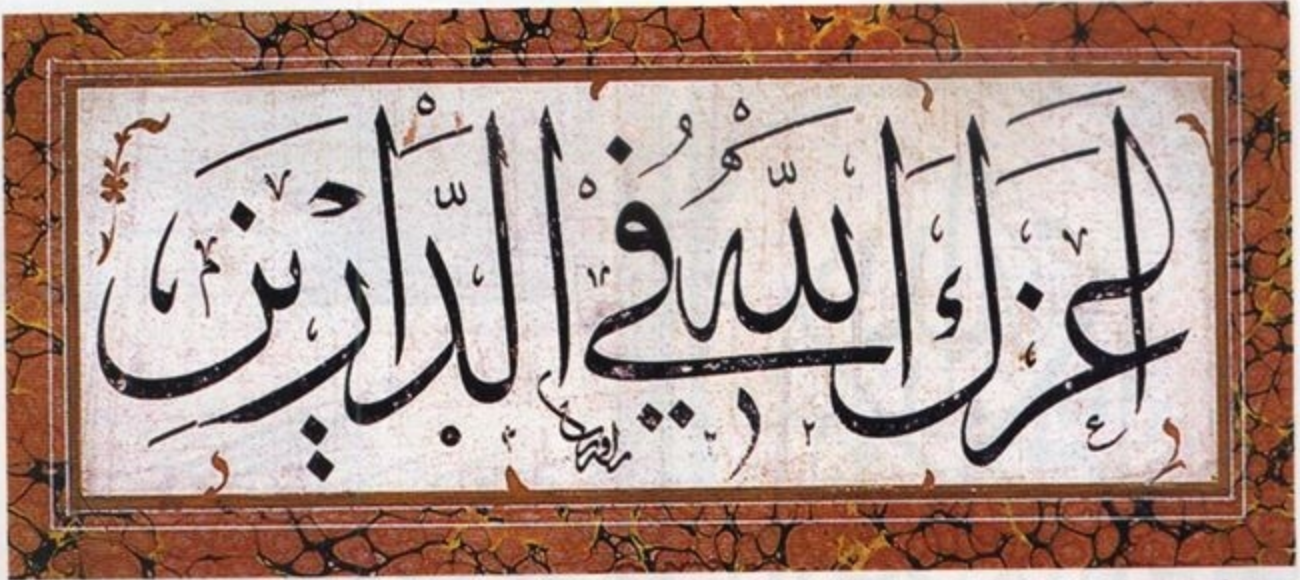 أَعَزَّكَ اللّٰهُ فِي الدَّارَيْنِ